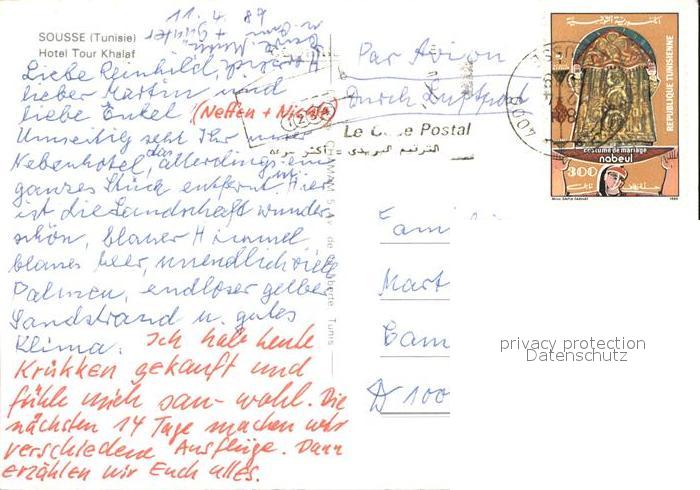 11.4.89
SOUSSE (Tunisie)
Hotel Tour Khalaf
Liebe Reinhild,
lieber Martin und
liebe Enkel (Neffen + Nichte)
Umseitig seht Ihr unser
Nebenhotel, das allerdings ein
ganzes Stück entfernt ist. Hier
ist die Landschaft wunder
schön, blauer Himmel,
blaues Meer, unendlich viele
Palmen, endloser gelber
Sandstrand u. gutes
Klima. Ich habe heute
Krükken gekauft und
fühle mich sau-wohl. Die
nächsten 14 Tage machen wir
verschiedene Ausflüge. Dann
erzählen wir Euch alles.
Par Avion
Durch Luftpost
Le Code Postal
الترقيم البريدي = أكثر سرعة
400
REPUBLIQUE TUNISIENNE
costume de mariage
nabeul
300
Tunis
Fami
Mart
Cam
D 100
privacy protection
Datenschutz